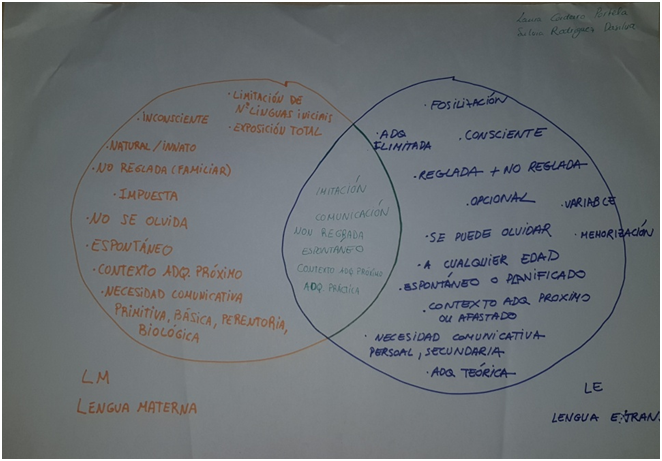 Rodríguez
· LIMITACIÓN DE
Nº LINGUAS INICIAIS
· EXPOSICIÓN TOTAL
· INCONSCIENTE
· NATURAL / INNATO
· NO REGLADA (FAMILIAR)
· IMPUESTA
· NO SE OLVIDA
· ESPONTÁNEO
· CONTEXTO ADQ. PRÓXIMO
· NECESIDAD COMUNICATIVA
PRIMITIVA, BÁSICA, PERENTORIA,
BIOLÓGICA
LM
LENGUA MATERNA
IMITACIÓN
COMUNICACIÓN
NON REGRADA
ESPONTÁNEO
CONTEXTO ADQ PRÓXIMO
ADQ. PRÁCTICA
· FOSILIZACIÓN
· ADQ
ILIMITADA
· CONSCIENTE
· REGLADA + NO REGLADA
· OPCIONAL
· VARIABLE
· SE PUEDE OLVIDAR
· MEMORIZACIÓN
· A CUALQUIER EDAD
· ESPONTÁNEO O PLANIFICADO
· CONTEXTO ADQ PROXIMO
OU AFASTADO
· NECESIDAD COMUNICATIVA
PERSOAL, SECUNDARIA
· ADQ TEÓRICA
LE
LENGUA EXTRAN